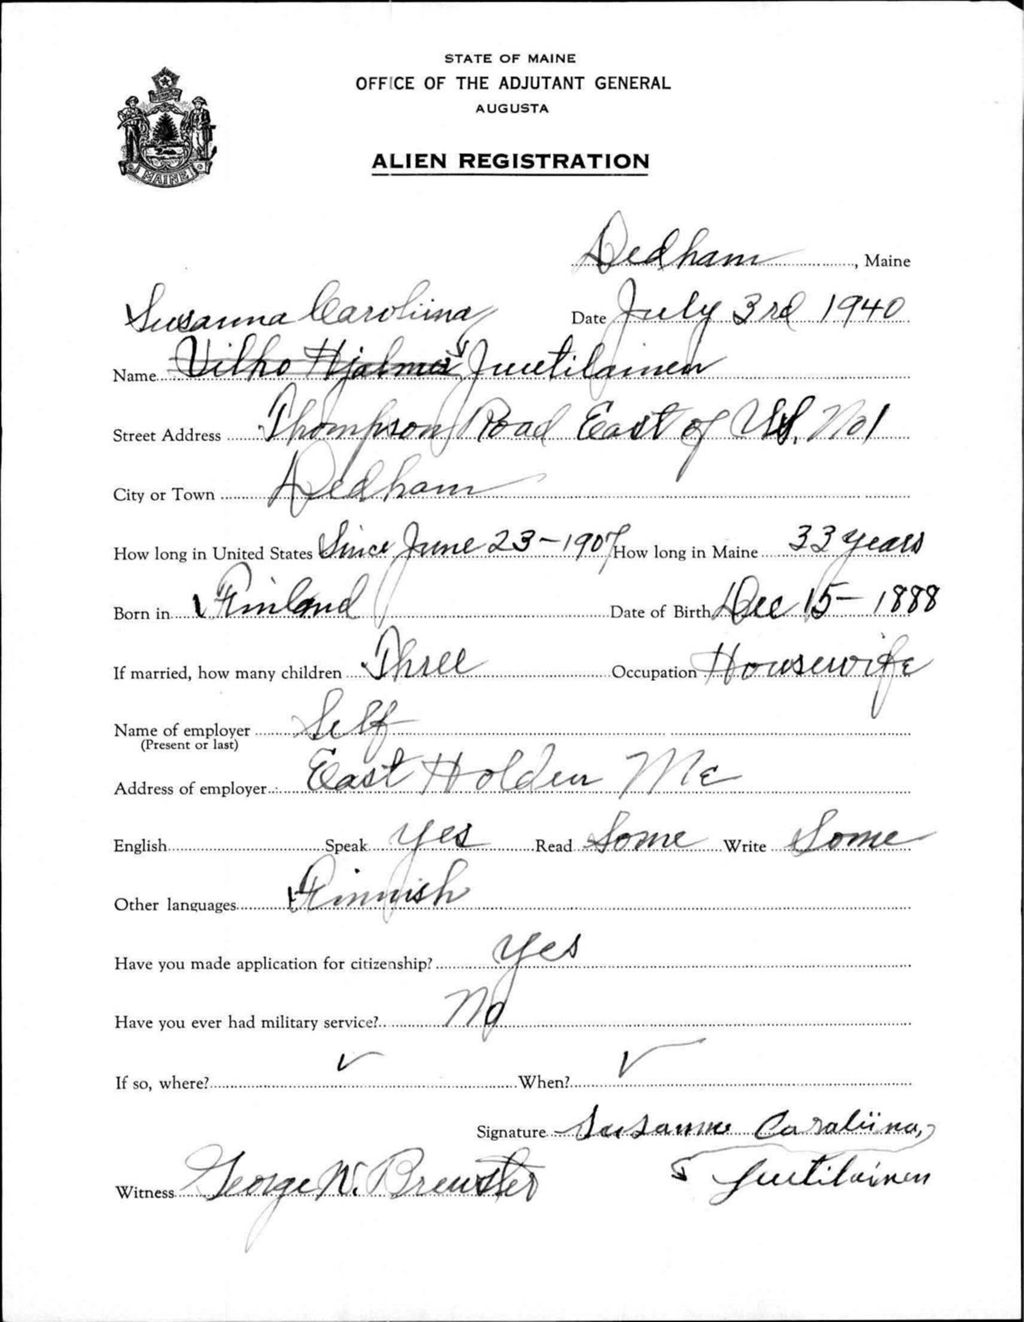 STATE OF MAINE
OFFICE OF THE ADJUTANT GENERAL
AUGUSTA
ALIEN REGISTRATION
MAINE
Dedham, Maine
Susanna Caroliina
Date July 3rd 1940
Name Vilho Hjalmar Juutilainen
Street Address Thompson Road East of U.S. No 1
City or Town Dedham
How long in United States Since June 23-1907 How long in Maine 33 years
Born in Finland Date of Birth Dec 15-1888
If married, how many children Three Occupation Housewife
Name of employer Self
(Present or last)
Address of employer East Holden Me
English Speak Yes Read Some Write Some
Other languages Finnish
Have you made application for citizenship? Yes
Have you ever had military service? No
If so, where? ✓ When? ✓
Signature Susanna Caroliina,
Juutilainen
Witness George N. Brewster